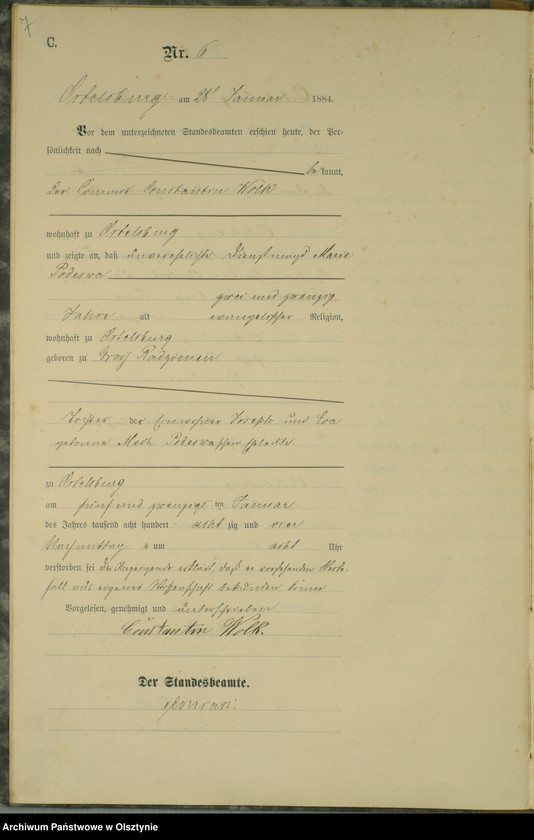 7
C.
Nr. 6
Ortelsburg am 28' Januar 1884.
Vor dem unterzeichneten Standesbeamten erschien heute, der Per-
sönlichkeit nach
bekannt,
der Commis Constantin Wolk
wohnhaft zu Ortelsburg
und zeigte an, daß unverehelichte Dienstmagd Marie
Podeswa
zwei und zwanzig
Jahre alt evangelischer Religion,
wohnhaft zu Ortelsburg
geboren zu Gross Radzienen
Tochter der Einwohner Joseph und Eva
geborene Podeswaschen Eheleute
zu Ortelsburg
am fünf und zwanzigs ten Januar
des Jahres tausend acht hundert acht zig und vier
Nachmittag s um acht Uhr
verstorben sei Der Anzeigende erklärt, daß er vorstehenden Sterbe-
fall aus eigener Wissenschaft bekunden könne
Vorgelesen, genehmigt und unterschrieben
Constantin Wolk.
Der Standesbeamte.
Archiwum Państwowe w Olsztynie